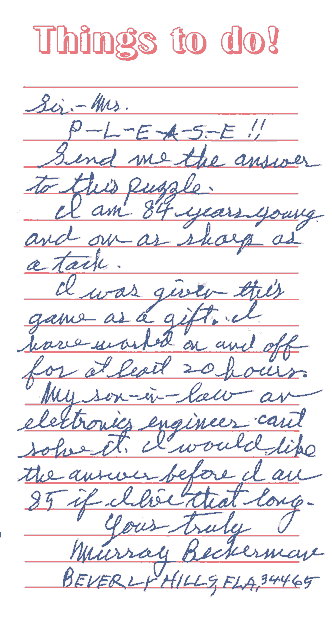 Things to do!
Sir.-Mrs.
P-L-E-A-S-E !!
Send me the answer
to this puzzle.
I am 84 years young
and am as sharp as
a tack.
I was given this
game as a gift. I
have worked on and off
for at least 20 hours.
My son-in-law an
electronics engineer can't
solve it. I would like
the answer before I am
85 if I live that long-
Yours truly
Murray Beckerman
BEVERLY HILLS, FLA, 34465